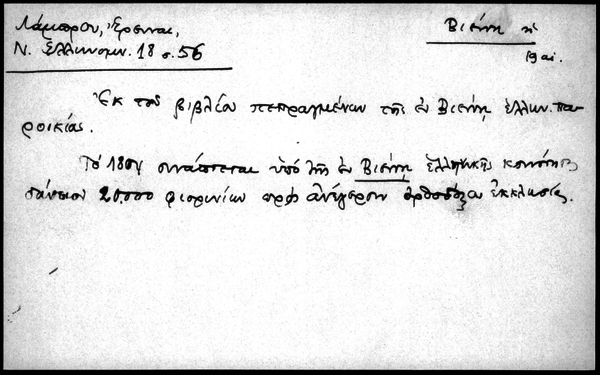 Λάμπρου, Ἔρευναι,
Ν. Ἑλληνομν. 18 σ. 56
Βιέννη
19 αἰ.
Ἐκ τοῦ βιβλίου πεπραγμένων τῆς ἐν Βιέννῃ ἑλλην. πα-
ροικίας.
Τὸ συνάπτεται ὑπὸ τῆς ἐν Βιέννῃ ἑλληνικῆς κοινότητος
δάνειον 20.000 φιορινίων πρὸς ἀνέγερσιν ὀρθοδόξου ἐκκλησίας.